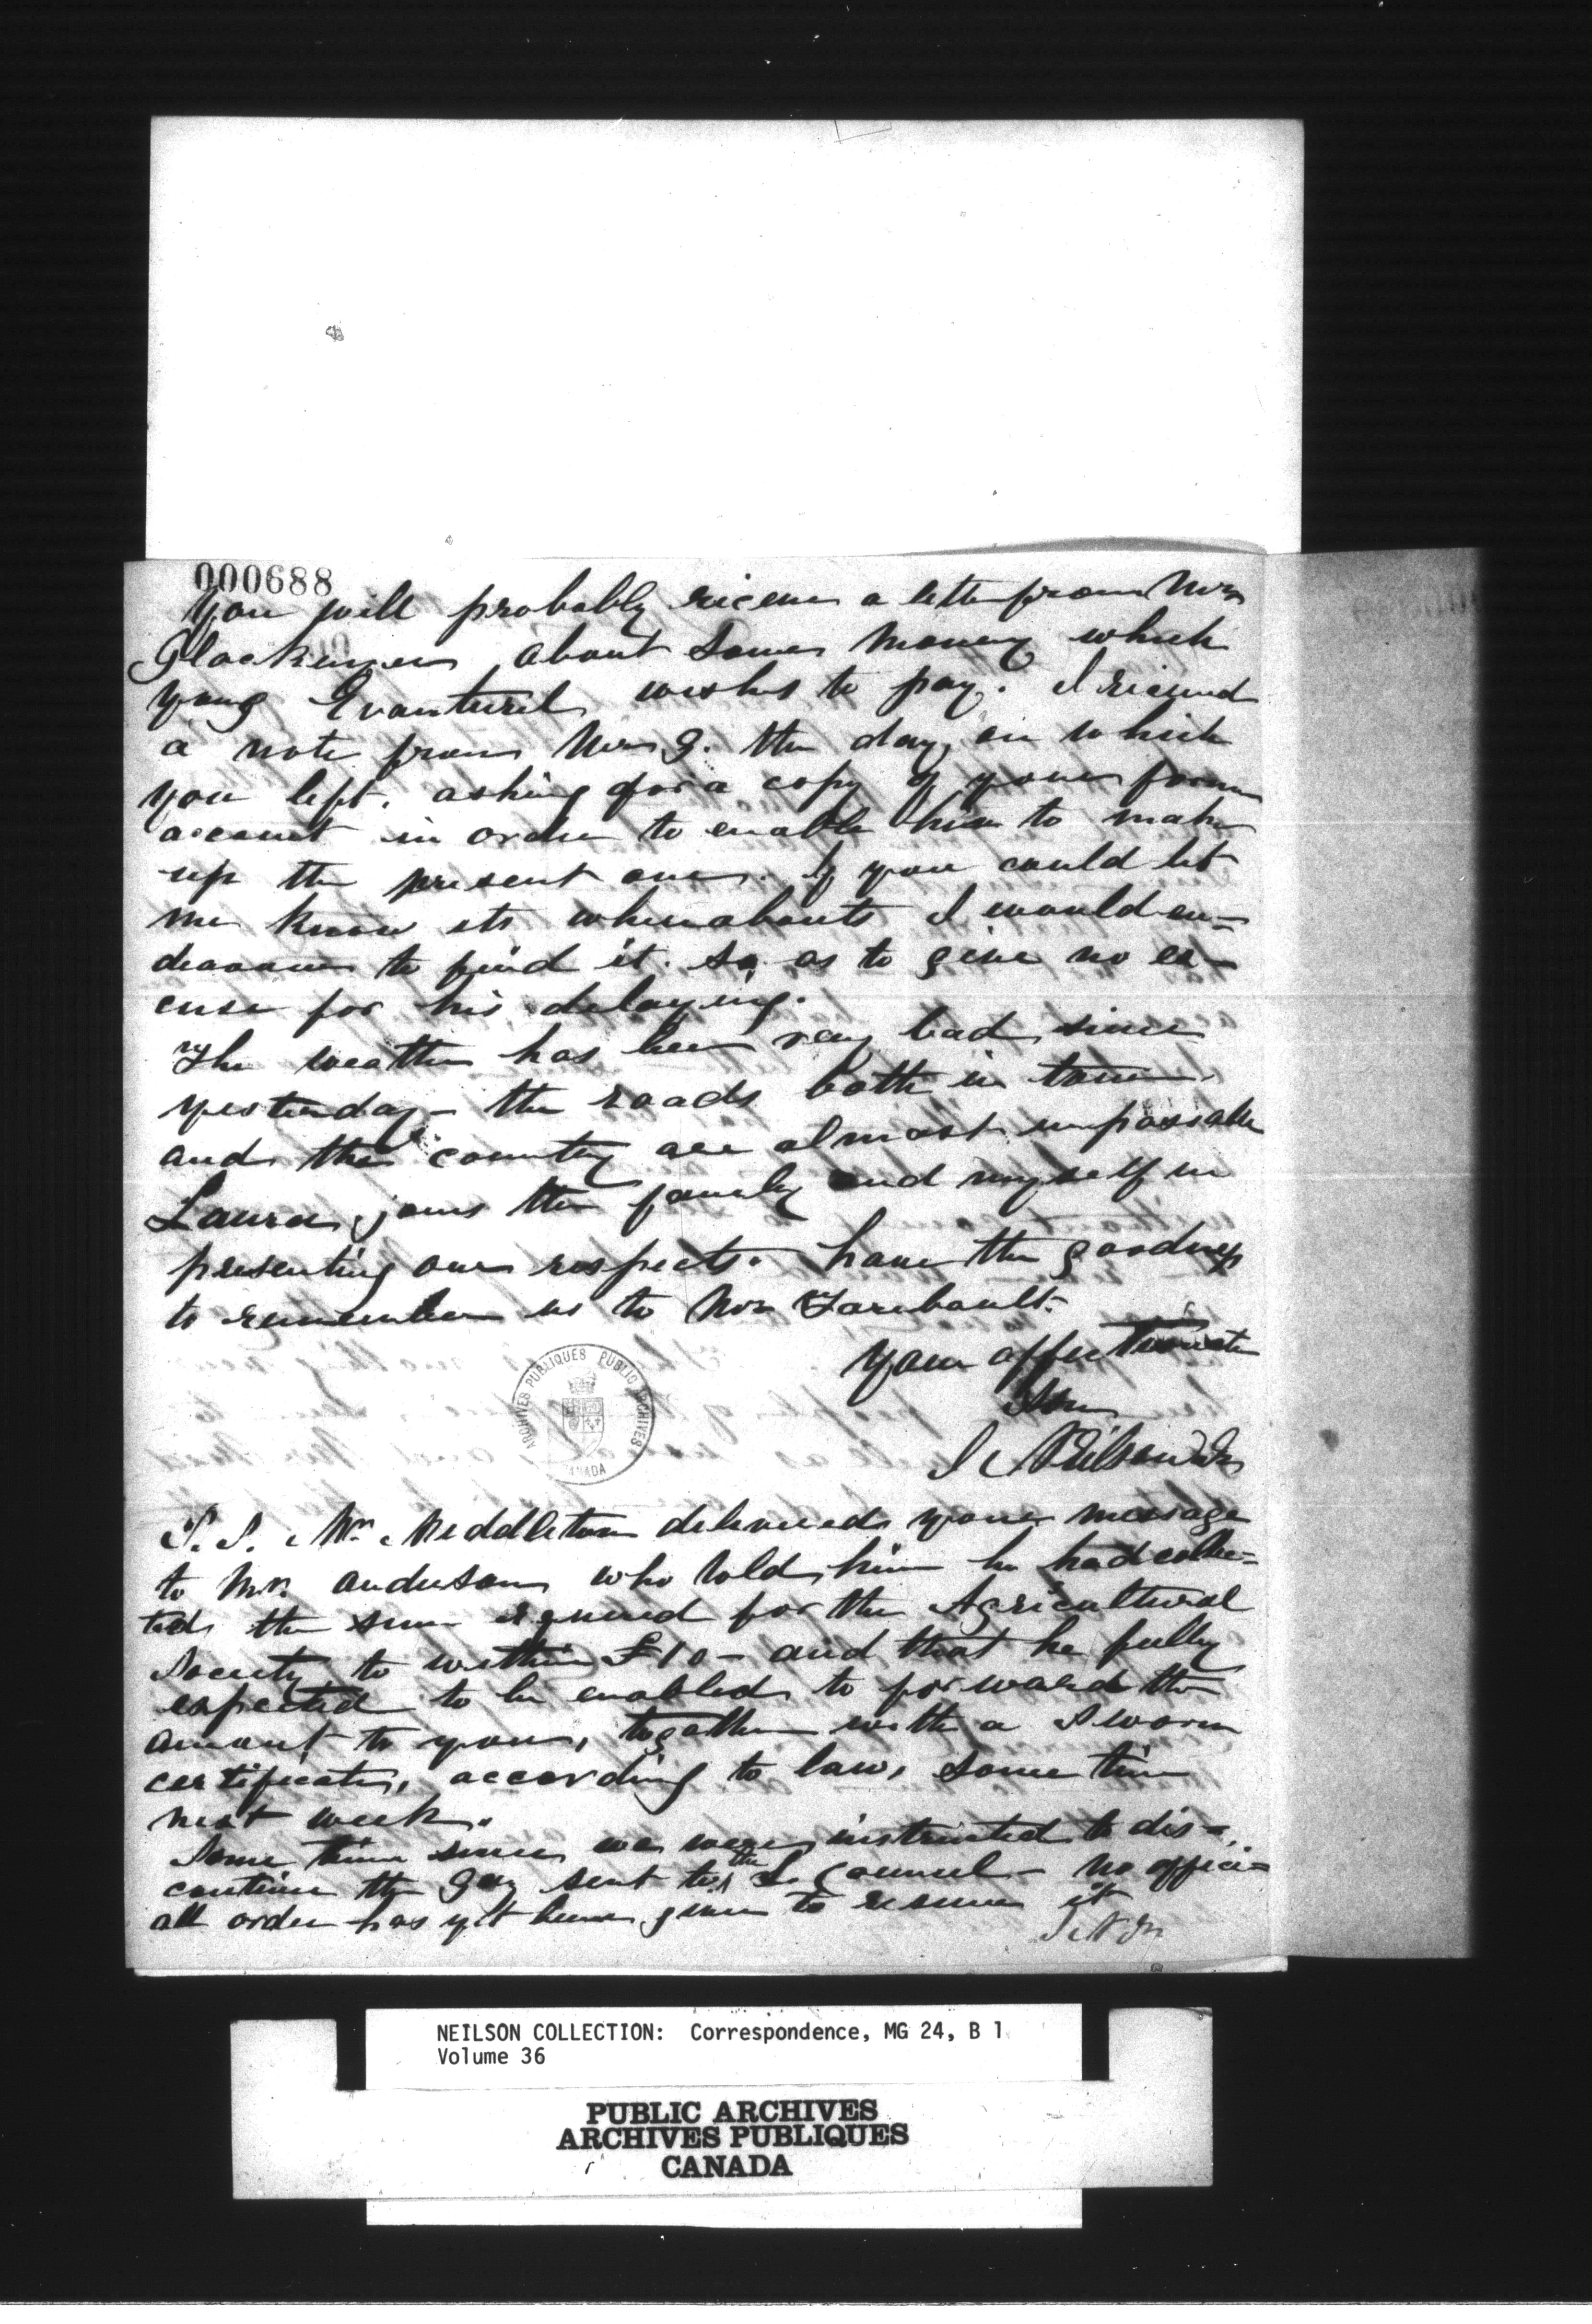 000688
You will probably receive a letter from Mr
Glackemeyer about some money which
young Evanturel wishes to pay. I received
a note from Mr G. the day on which
you left. asking for a copy of your form
account in order to enable him to make
up the present one. If you could let
me know its whereabouts I would en=
deavour to find it. so as to give no ex=
cuse for his delaying.
The weather has been very bad since
yesterday - the roads both in town
and the country are almost impassable
Laura joins the family and myself in
presenting our respects. have the goodness
to remember us to Mr Faribault.
Your affectionate
Son
J Neilson Jr
ARCHIVES PUBLIQUES PUBLIC ARCHIVES
CANADA
P.S. Mr. Middleton delivered your message
to Mr. Anderson who told him he had collec=
ted the sum required for the Agricultural
Society to within £10 - and that he fully
expected to be enabled to forward the
amount to you, together with a sworn
certificate, according to law, some time
next week.
Some time since we were instructed to dis=
continue the Gaz sent to the L. Council - no offici=
all order has yet been given to resume it
J N Jr
NEILSON COLLECTION: Correspondence, MG 24, B 1
Volume 36
PUBLIC ARCHIVES
ARCHIVES PUBLIQUES
CANADA